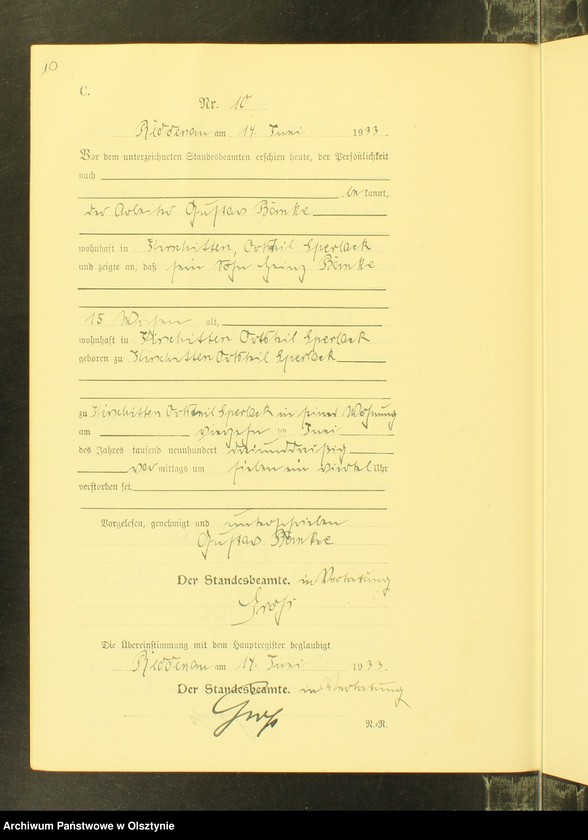 10
C.
Nr. 10
Röddenau am 14. Juni 1933.
Vor dem unterzeichneten Standesbeamten erschien heute, der Persönlichkeit
nach
be kannt,
der Arbeiter Gustav Bömke
wohnhaft in Kirschitten, Ortsteil Sperlack
und zeigte an, daß sein Sohn Heinz Bömke
15 Wochen alt,
wohnhaft in Kirschitten Ortsteil Sperlack
geboren zu Kirschitten Ortsteil Sperlack
zu Kirschitten Ortsteil Sperlack in seiner Wohnung
am vierzehn ten Juni
des Jahres tausend neunhundert dreiunddreißig
vor mittags um sieben ein viertel Uhr
verstorben sei.
Vorgelesen, genehmigt und unterschrieben
Gustav Bömke
Der Standesbeamte. in Vertretung
Groß
Die Übereinstimmung mit dem Hauptregister beglaubigt
Röddenau am 14. Juni 1933
Der Standesbeamte. in Vertretung
Groß
N.-N.
Archiwum Państwowe w Olsztynie